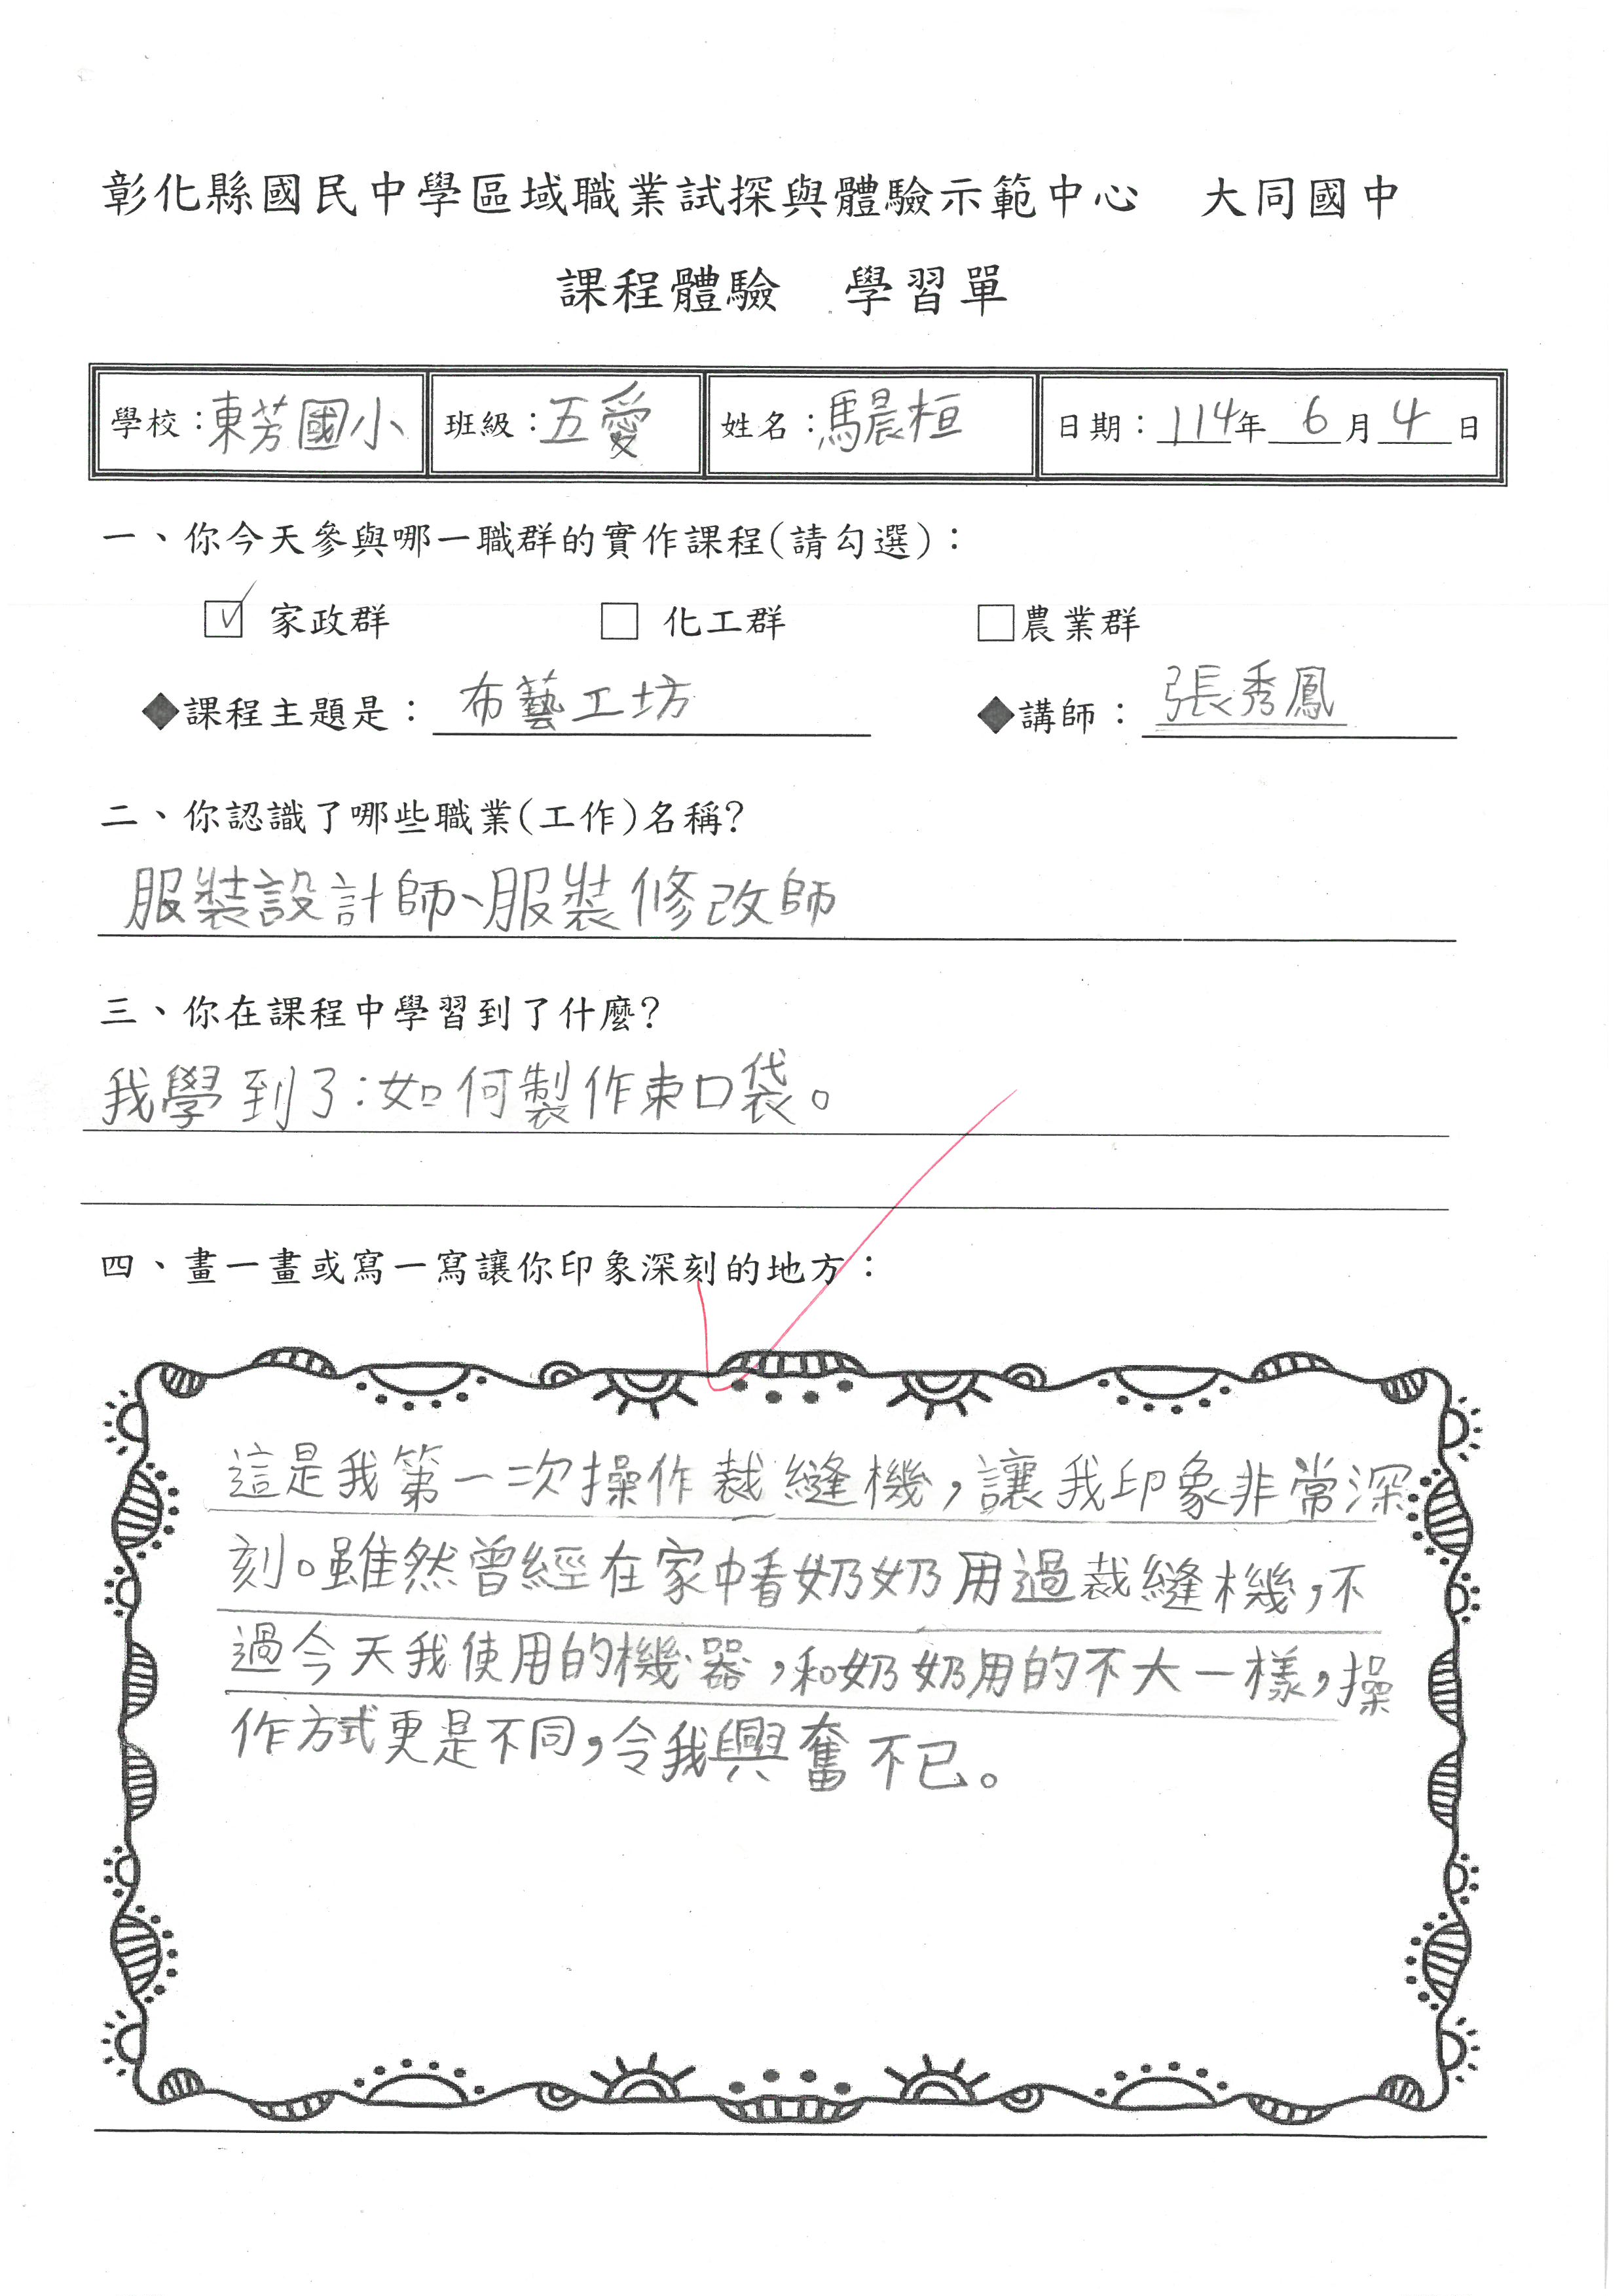 彰化縣國民中學區域職業試探與體驗示範中心　大同國中
課程體驗　學習單
學校：東芳國小　班級：五愛　姓名：馬晨桓　日期：114年6月4日
一、你今天參與哪一職群的實作課程(請勾選)：
☑ 家政群　□ 化工群　□農業群
◆課程主題是：布藝工坊　◆講師：張秀鳳
二、你認識了哪些職業(工作)名稱?
服裝設計師、服裝修改師
三、你在課程中學習到了什麼?
我學到了：如何製作束口袋。
四、畫一畫或寫一寫讓你印象深刻的地方：
這是我第一次操作裁縫機，讓我印象非常深
刻。雖然曾經在家中看奶奶用過裁縫機，不
過今天我使用的機器，和奶奶用的不大一樣，操
作方式更是不同，令我興奮不已。